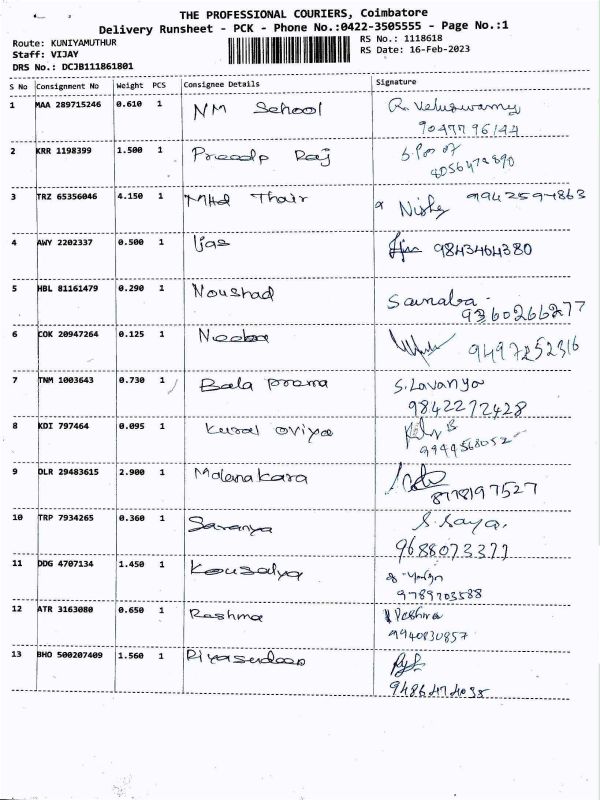 THE PROFESSIONAL COURIERS, Coimbatore
Delivery Runsheet - PCK - Phone No.:0422-3505555 - Page No.:1
Route: KUNIYAMUTHUR
RS No.: 1118618
Staff: VIJAY
RS Date: 16-Feb-2023
DRS No.: DCJB111861801
S No Consignment No Weight PCS Consignee Details Signature
1 MAA 289715246 0.610 1 NM School R. Veluswamy
9047796144
2 KRR 1198399 1.500 1 Pradeep Raj
8056472890
3 TRZ 65356046 4.150 1 MHd Thair 9942594863
4 AWY 2202337 0.500 1 Ijas 9843464380
5 HBL 81161479 0.290 1 Noushad
9360266277
6 COK 20947264 0.125 1 Neeba 9497252316
7 TNM 1003643 0.730 1 Bala prama S. Lavanya
9842272428
8 KDI 797464 0.095 1 Kural oviya
9944568052
9 DLR 29483615 2.900 1 Malanakara
8778197527
10 TRP 7934265 0.360 1 Saranya S. Saya.
9688073377
11 DDG 4707134 1.450 1 Kousalya
9789703588
12 ATR 3163080 0.650 1 Reshma Reshma
9940830857
13 BHO 500207409 1.560 1 Riyasudeen